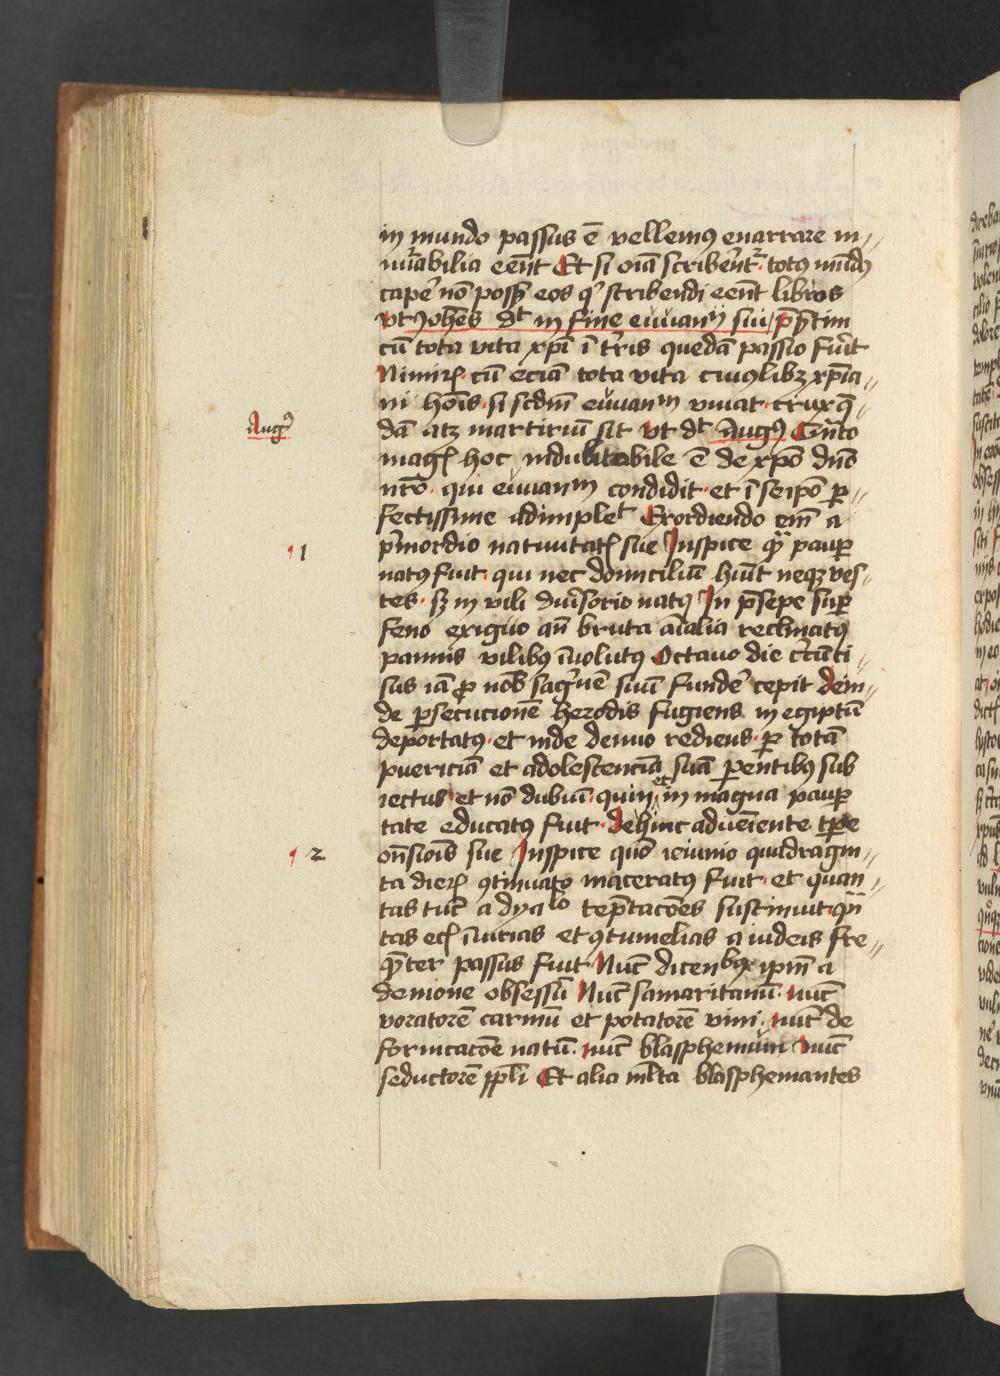 in mundo passus ē vellemꝰ enarrare in⸗
nūabilia eēnt Et si oīa scribēnt᷑ · totꝰ mūdꝰ
capē nō possꝫ eos qͥ scribendi eēnt libros
vt Johēs dt in fine euuanⁱⁱ sui / p̄s̄tim
cū tota vita xpī ī t̄ris quedā passio fuit̄
Nimiꝝ · cū eciā tota vita cuiꝰlibꝫ xp̄ia⸗
ni hoīs · si scdm̄ euuanᵐ viuat · crux q̄⸗
dā atꝫ martiriū sit vt dt Augꝰ Cūto
Augꝰ
magꝭ hoc indubitabile ē de xpō dn̄o
nr̄o · qui euuanᵐ condidit · et ī seip̄o ꝑ⸗
fectissime adimplet Exordiendo em̄ a
p̄mordio natiuitatꝭ sue Inspice qͣ paup̄
1
natꝰ fuit · qui nec domiciliū hūit neqꝫ ves⸗
tes · sꝫ in vili diūsorio natꝰ In p̄sepe suꝑ
feno exiguo an̄ bruta aīalia reclinatꝰ
pannis vilibꝰ īuolutꝰ Octauo die c̄cūci⸗
sus iā ꝓ nob̄ sagᷓuē suū fundē cepit dein⸗
de ꝑsecucionē herodis fugiens in egiptū
deportatꝰ · et inde denuo rediens · ꝑ totā
puericiā et adolescenciā suā ꝑentibꝰ sub
iectus et nō dubiū · quin et in magna pauꝑ
tate educatꝰ fuit · Dehinc adueīente tꝑe
on̄sioīs sue Inspice quō ieiunio quadragin⸗
2
ta dieꝝ ꝯtinuato maceratꝰ fuit · et quan⸗
tas tūc a dyalo tēptacōes sustinuit · qͣn
tas ecꝭ īiurias et ꝯtumelias a iudeis fre⸗
q̄ter passus fuit Nūc dicenbꝰ ip̄m a
demone obsessū Nūc samaritanū · nūc
voratorē carniū et potatorē vini · nūc de
fornicacōe natū · nūc blasphemum nūc
seductorē pp̄li Et alia ml̄ta blasphemantes